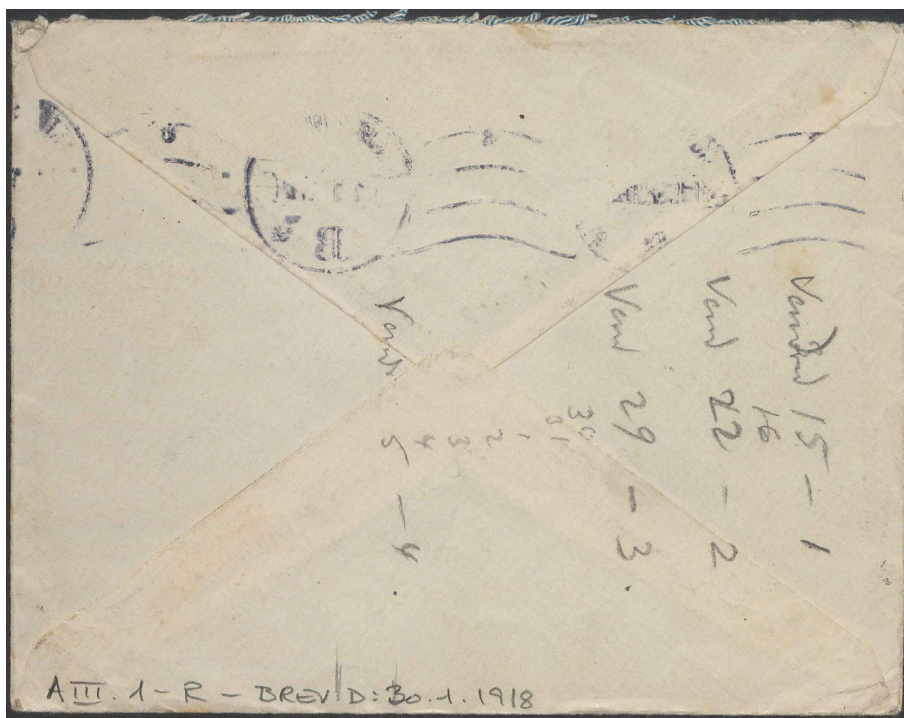 Vendred 15 - 1
16
Vend 22 - 2
Vend 29 - 3
30
31
1
2
3
4
Vend 5 - 4
A III. 1 - R - BREV D: 30.1.1918